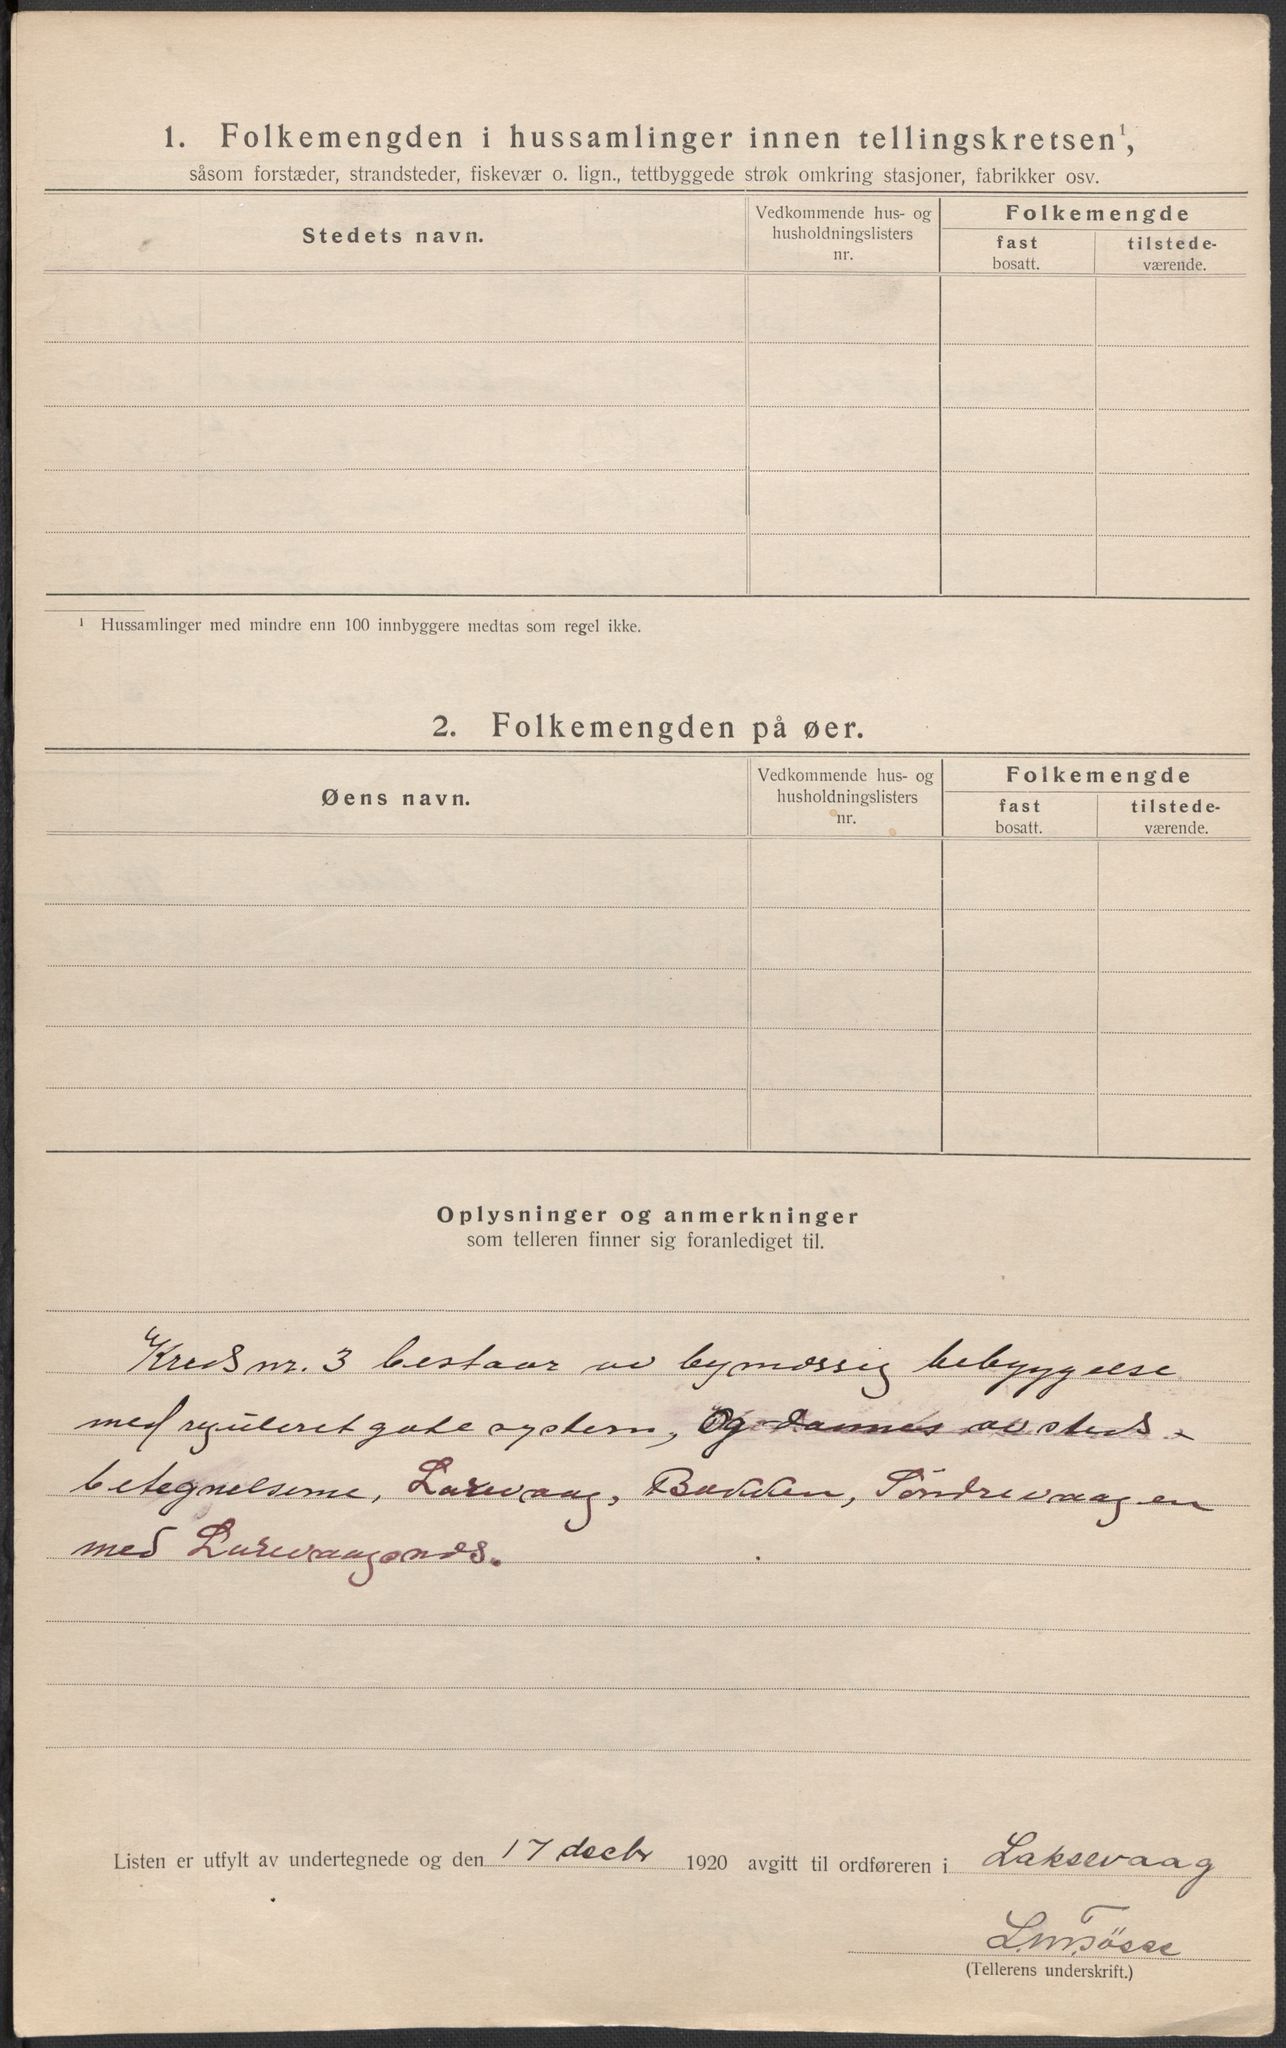 1. Folkemengden i hussamlinger innen tellingskretsen¹,
såsom forstæder, strandsteder, fiskevær o. lign., tettbyggede strøk omkring stasjoner, fabrikker osv.
Stedets navn.
Vedkommende hus- og
husholdningslisters
nr.
Folkemengde
fast
bosatt.
tilstede-
værende.
¹ Hussamlinger med mindre enn 100 innbyggere medtas som regel ikke.
2. Folkemengden på øer.
Øens navn.
Vedkommende hus- og
husholdningslisters
nr.
Folkemengde
fast
bosatt.
tilstede-
værende.
Oplysninger og anmerkninger
som telleren finner sig foranlediget til.
Kreds nr. 3 bestaar av bymæssig bebyggelse
med reguleret gate system, Og dannes av steds-
betegnelserne, Laxevaag, Bakken, Søndrevaagen
med Laxevaagsnæs.
Listen er utfylt av undertegnede og den 17 decbr 1920 avgitt til ordføreren i Laksevaag
(Tellerens underskrift.)